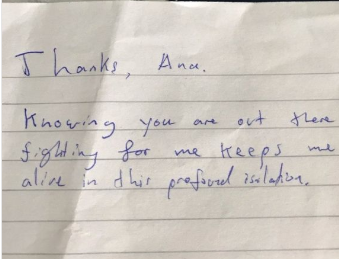 Thanks, Ana.
Knowing you are out there
fighting for me keeps me
alive in this profound isolation.